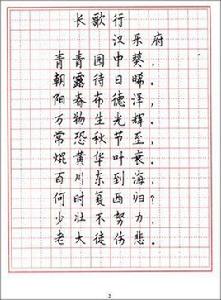 长歌行
汉乐府
青青园中葵，
朝露待日晞。
阳春布德泽，
万物生光辉。
常恐秋节至，
焜黄华叶衰。
百川东到海，
何时复西归？
少壮不努力，
老大徒伤悲。